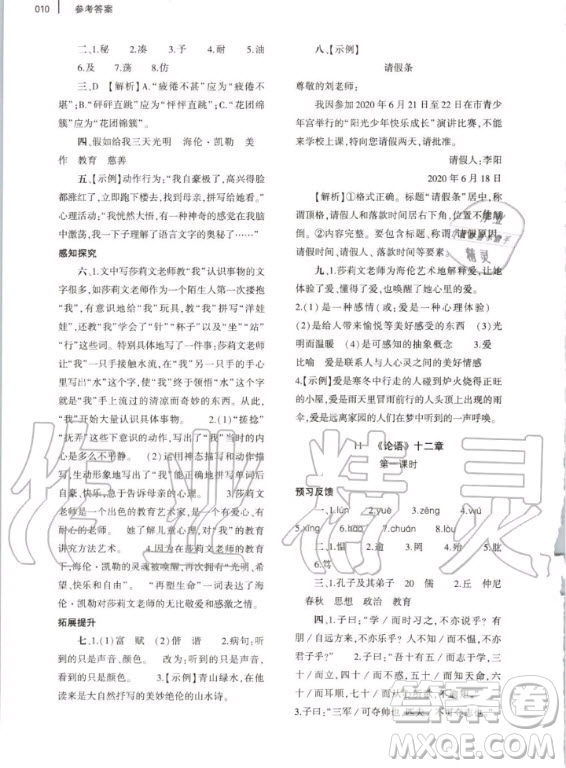 010 参考答案
二、1.秘 2.凑 3.予 4.耐 5.油
6.及 7.荡 8.仿
三、D 【解析】A.“疲倦不甚”应为“疲倦不
堪”;B.“砰砰直跳”应为“怦怦直跳”;C.“花团绵
簇”应为“花团锦簇”。
四、假如给我三天光明 海伦·凯勒 美
作 教育 慈善
五、[示例]动作行为:“我自豪极了,高兴得脸
都涨红了,立即跑下楼去,找到母亲,……拼写这
个字给她看。”
心理活动:“我恍然大悟,有股神奇的感觉在我脑
中激荡,我一下子理解了语言文字的奥秘了……”
感知探究
六、1.文中写莎莉文老师教“我”认识事物的文
字很多,如莎莉文老师作为一个陌生人第一次拥抱
“我”,有意识地给“我”玩具,教“我”拼写“洋娃
娃”,还教“我”拼写了“针”“杯子”以及“坐”“站”
“行”这些词语。特别具体地写了一件事:莎莉文
老师教“我”认识“水”这个字,莎莉文老师把
“我”一只手接触水流,在“我”另一只手的手心
里拼写出“水”这个字,使“我”领悟到“水”这个字
就是“我”手上流过的清凉而奇妙的东西。从此,
“我”大量地认识具体事物。 2.(1)“搓捻”
“抚弄”这些下意识的动作,写出了“我”的心情
是多么不平静。 (2)运用神态描写和动作描写,
生动形象地写出了“我”在得知自己能认识世界
后无比激动和喜悦的心情。 3.莎莉文老师是个
很出色的教育艺术家,是个有爱心、有
耐心的老师 她了解儿童心理,对“我”的教育
讲究方法艺术 4.因为莎莉文老师的到来,使我
“再塑生命”
伦·凯勒对莎莉文老师的无比敬爱和感激之情。
拓展提升
七、1.(1)富 赋 (2)借 谐 2.病句:听到
的不只是声音、颜色。 改为:听到的不只是声音,
看到的不只是颜色。 3.[示例]青山绿水,在他
读来是大自然抒写的美妙绝伦的山水诗。
八、[示例]
请假条
尊敬的刘老师:
我因参加 2020 年 6 月 21 日至 22 日在市青少
年宫举行的“阳光少年快乐成长”演讲比赛,不能
来学校上课,特向您请假两天,请批准。
请假人:李阳
2020 年 6 月 18 日
【解析】①格式正确。标题“请假条”居中,称
谓顶格,请假人和落款时间居右下位置,不能错位。
②内容完整。
时间、请假人、落款时间等要素。
九、1.莎莉文老师为海伦艺术地解释爱,让她
体验到爱,懂得了爱,与爱同行
2.(1)是一种感情(或:爱是一种心理体验)
(2)爱是带来愉悦等美好感受的东西
(4)爱是不可触知的抽象概念 3.爱
比喻 爱是联系人与人心灵之间的美好情感
4.[示例]爱是寒冬中行走的人碰到炉火烧得正旺
的小屋,爱是雨天里冒雨前行的人头顶上出现的
伞,爱是远离家园的人们在梦中听到的一声呼唤。
11 《论语》十二章
第一课时
预习反馈
一、1.lún 2.yuè 3.yuè 4.zēng
5.xǐng 6.hào 7.chuán 8.lòu
二、1.愠 2.逾 3.罔 4.殆 5.肱
6.笃
三、1.孔子及其弟子 20 儒 2.丘 仲尼
春秋 思想 政治 教育
四、1.子曰:“学/而时习之,不亦说乎?有/
朋自远方来,不亦乐乎?人不知/而不愠,不亦
君子乎?” 2.子曰:“吾/十有五/而志于学,三
十/而立,四十/而不惑,五十/而知天命,六
十/而耳顺,七十/而从心所欲,不逾矩。”
3.子曰:“三军/可夺帅也,匹夫/不可夺志也。”
作业精灵
答案卷
MXQE.COM